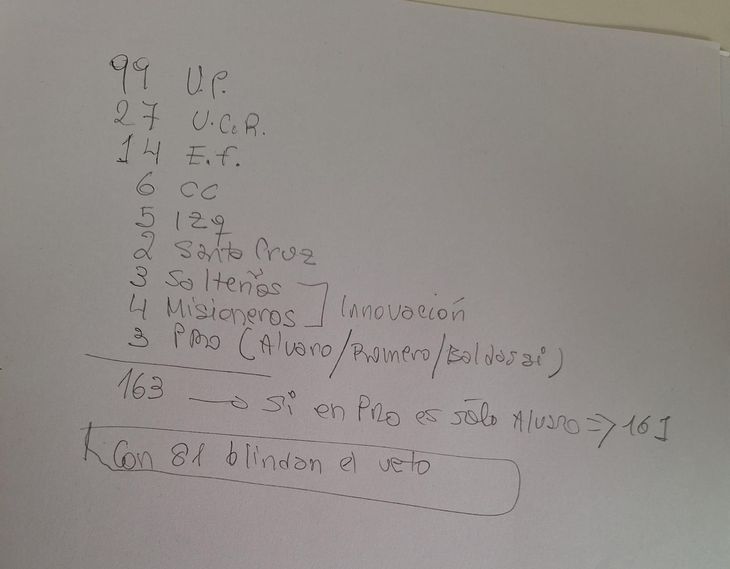 99 U.P.
27 U.C.R.
14 E.F.
6 CC
5 IZq
2 Santa Cruz
3 Salteños
4 Misioneros ] Innovación
3 PRO (Alvaro/Romero/Baldassi)
163 → Si en PRO es sólo Alvaro => 161
Con 81 blindan el veto